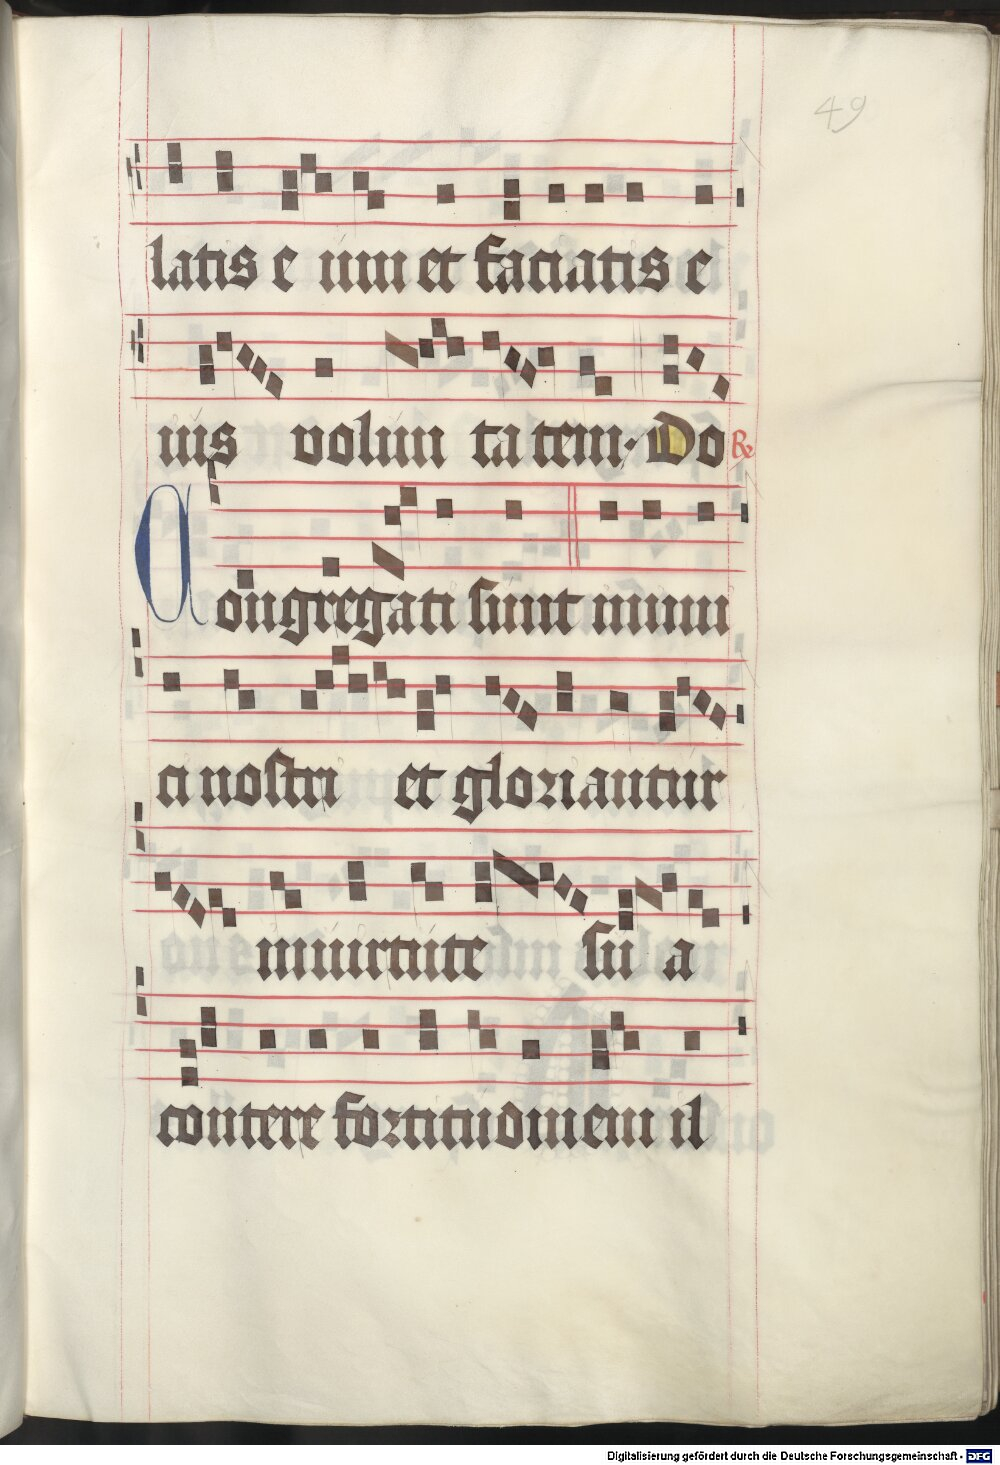 49
latis e um et faciatis e
ius volun ta tem. Do ℟
Congregati sunt inimi
ci nostri et gloriantur
in uirtute su a
contere fortitudinem il
Digitalisierung gefördert durch die Deutsche Forschungsgemeinschaft - DFG